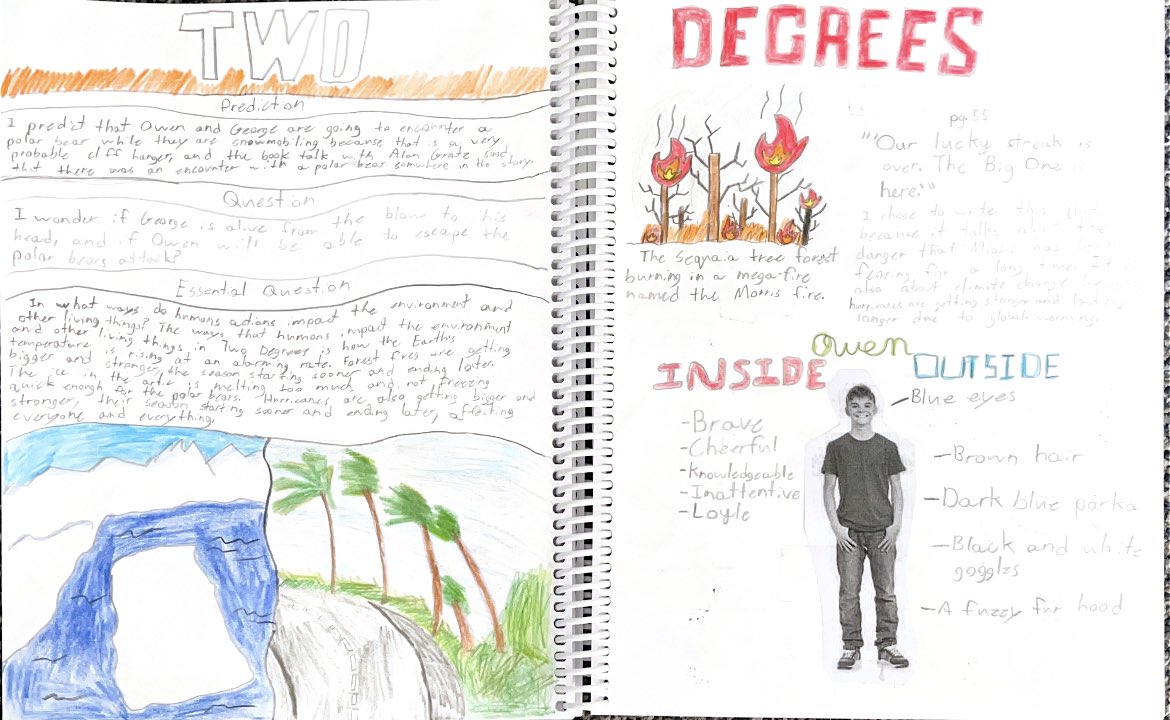 TWO
Prediction
I predict that Owen and George are going to encounter a
polar bear while they are snowmobiling because that is a very
probable cliff hanger, and the book talk with Alan Gratz said
that there was an encounter with a polar bear somewhere in the story.
Question
I wonder if George is alive from the blow to his
head, and if Owen will be able to escape the
polar bears attack?
Essential Question
In what ways do humans actions impact the environment and
other living things? The ways that humans impact the environment
and other living things in Two Degrees is how the Earth's
temperature is rising at an alarming rate. Forest fires are getting
bigger and stronger, the season starting sooner and ending later.
The ice in the artic is melting too much and not freezing
quick enough for the polar bears. Hurricanes are also getting bigger and
stronger, their season starting sooner and ending later, affecting
everyone and everything.
DEGREES
The Sequoia tree forest
burning in a mega-fire
named the Morris fire.
pg.55
"'Our lucky streak is
over. The Big One is
here.'"
I chose to write this
because it talks about the
danger that Miami has
fearing for a long time. It
also about climate change
hurricanes are getting stronger and
longer due to global warming.
Owen
INSIDE
-Brave
-Cheerful
-Knowledgeable
-Inattentive
-Loyle
OUTSIDE
-Blue eyes
-Brown hair
-Dark blue parka
-Black and white
goggles
-A fuzzy fur hood